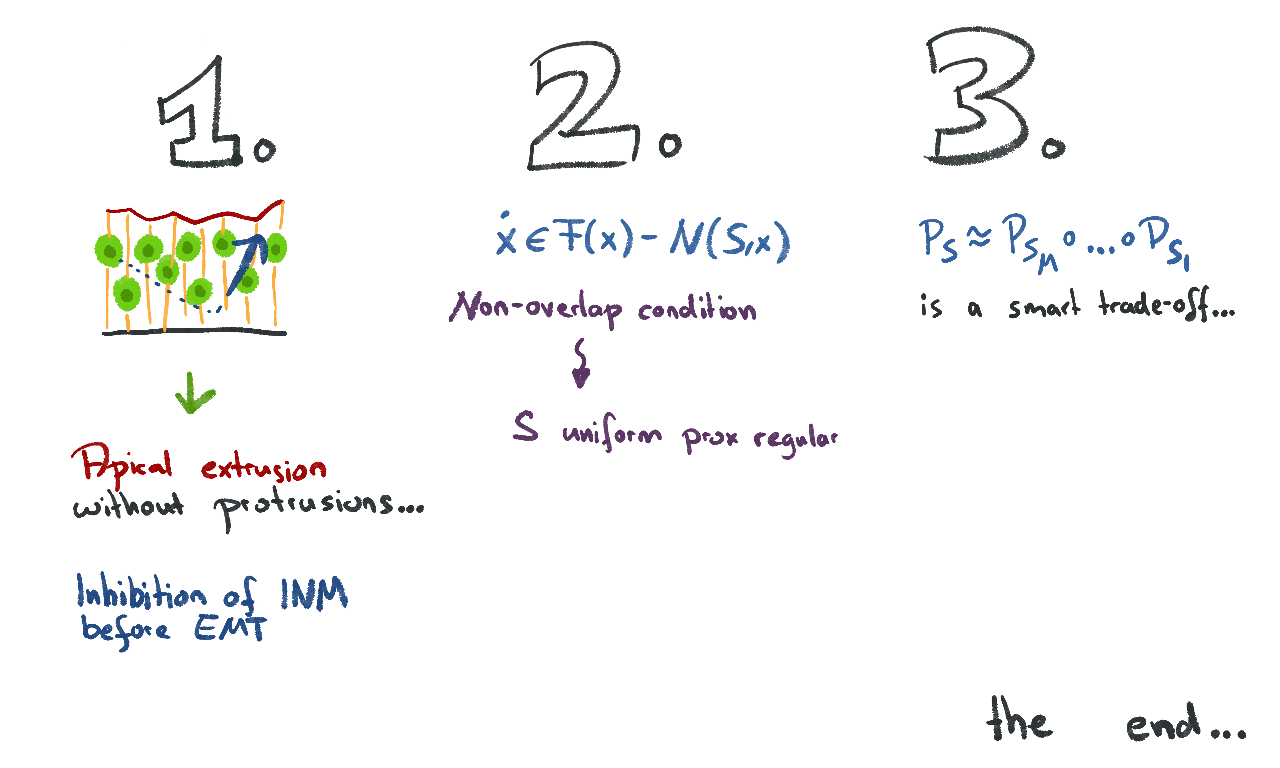 1.
Apical extrusion
without protrusions...
Inhibition of INM
before EMT
2.
ẋ ∈ F(x) - N(S,x)
Non-overlap condition
S uniform prox regular
3.
P_S ≈ P_{S_M} ∘ ... ∘ P_{S_1}
is a smart trade-off...
the end...